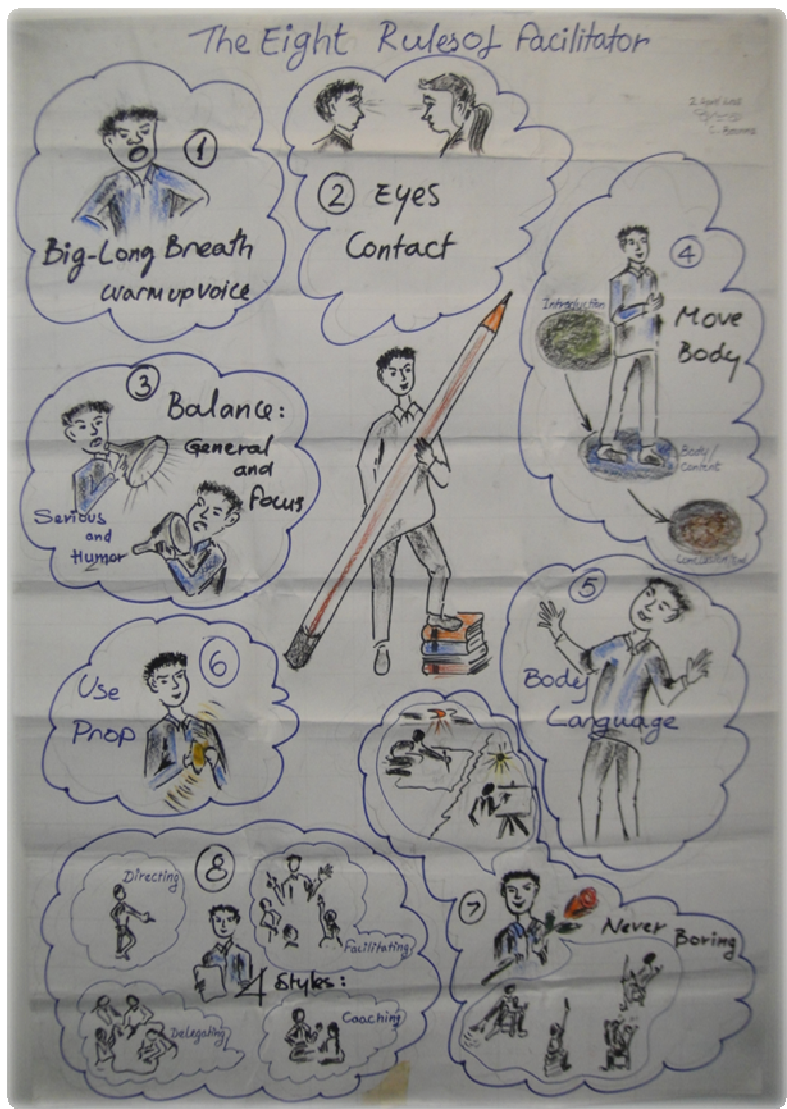 The Eight Rules of Facilitator
1
Big-Long Breath
warm up voice
2 Eyes
Contact
3
Balance:
General
and
Focus
Serious
and
Humor
4
Introduction
Move
Body
Body/
Content
5
Body
Language
6
Use
Prop
7
Never Boring
8
Directing
Facilitating
4 Styles:
Delegating
Coaching